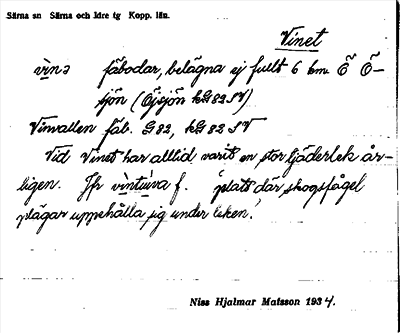 Särna sn Särna och Idre tg Kopp. län.
Vinet
vìnə fäbodar, belägna ej fullt 6 km Ö Ö-
sjön (Öjsjön kG 82 SV)
Vinvallen fäb. G 82, kG 82 SV
Vid Vinet har alltid varit en stor tjäderlek år-
ligen. Jfr vintuva f. 'plats där skogsfågel
plägar uppehålla sig under leken.'
Niss Hjalmar Matsson 1934.